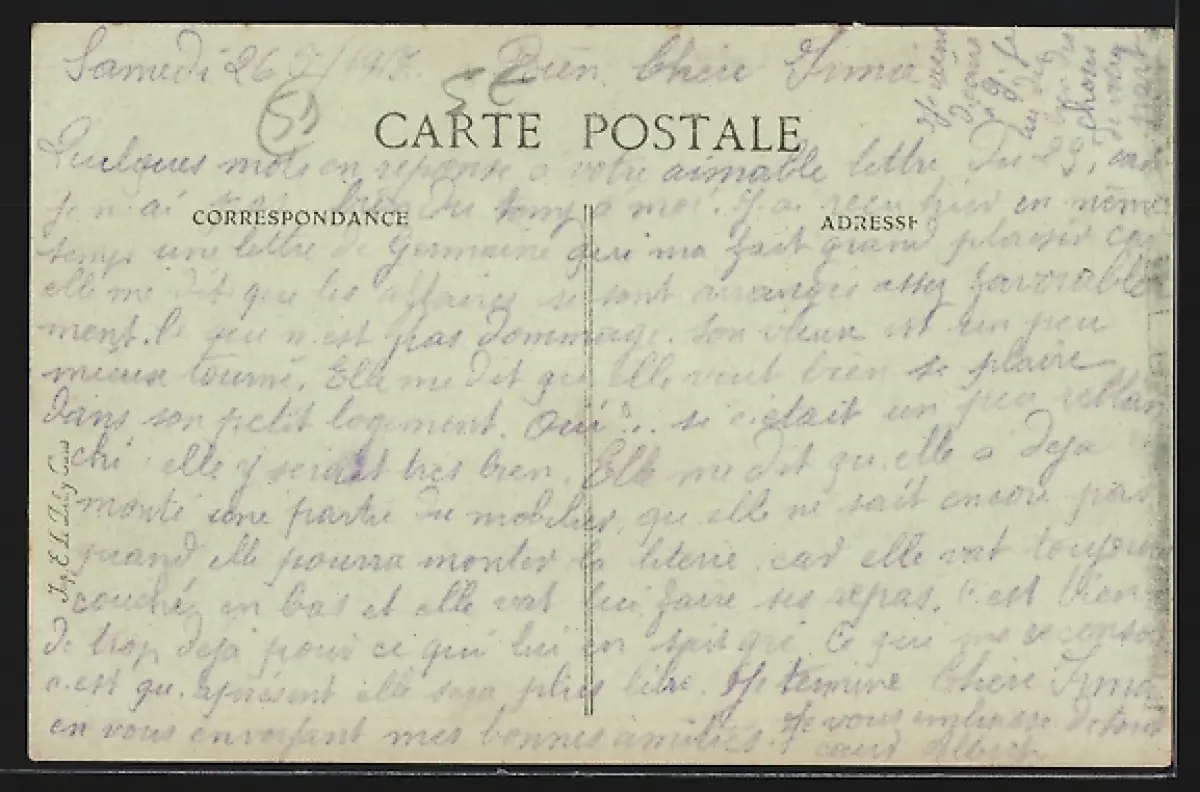 Samedi 26 1917. Bien Chère Irma
CARTE POSTALE
Quelques mots en reponse a votre aimable lettre du 23, car
je n'ai pas du temps a moi. J'ai reçu hier en même
CORRESPONDANCE
ADRESSE
temps une lettre de Germaine qui ma fait grand plaisir car
elle me dit que les affaires se sont arrangées assez favorable
ment. Ce qui n'est pas dommage. Son vieux est un peu
mieux tourné. Elle me dit que elle veut bien se plaire
dans son petit logement. Oui si c'était un peu reblan
chi elle y serait tres bien. Elle me dit qu'elle a deja
monté une partie du mobilier, que elle ne sait encore pas
quand elle pourra monter la literie car elle vat toujours
couché en bas et elle vat lui faire ses repas. C'est bien
de trop deja pour ce qui lui en sait gré. Ce qui me
c'est qu'apresent elle sera plus libre. Je termine Chère Irma
en vous envoyant mes bonnes amitiés. Je vous embrasse de tout
cœur Albert